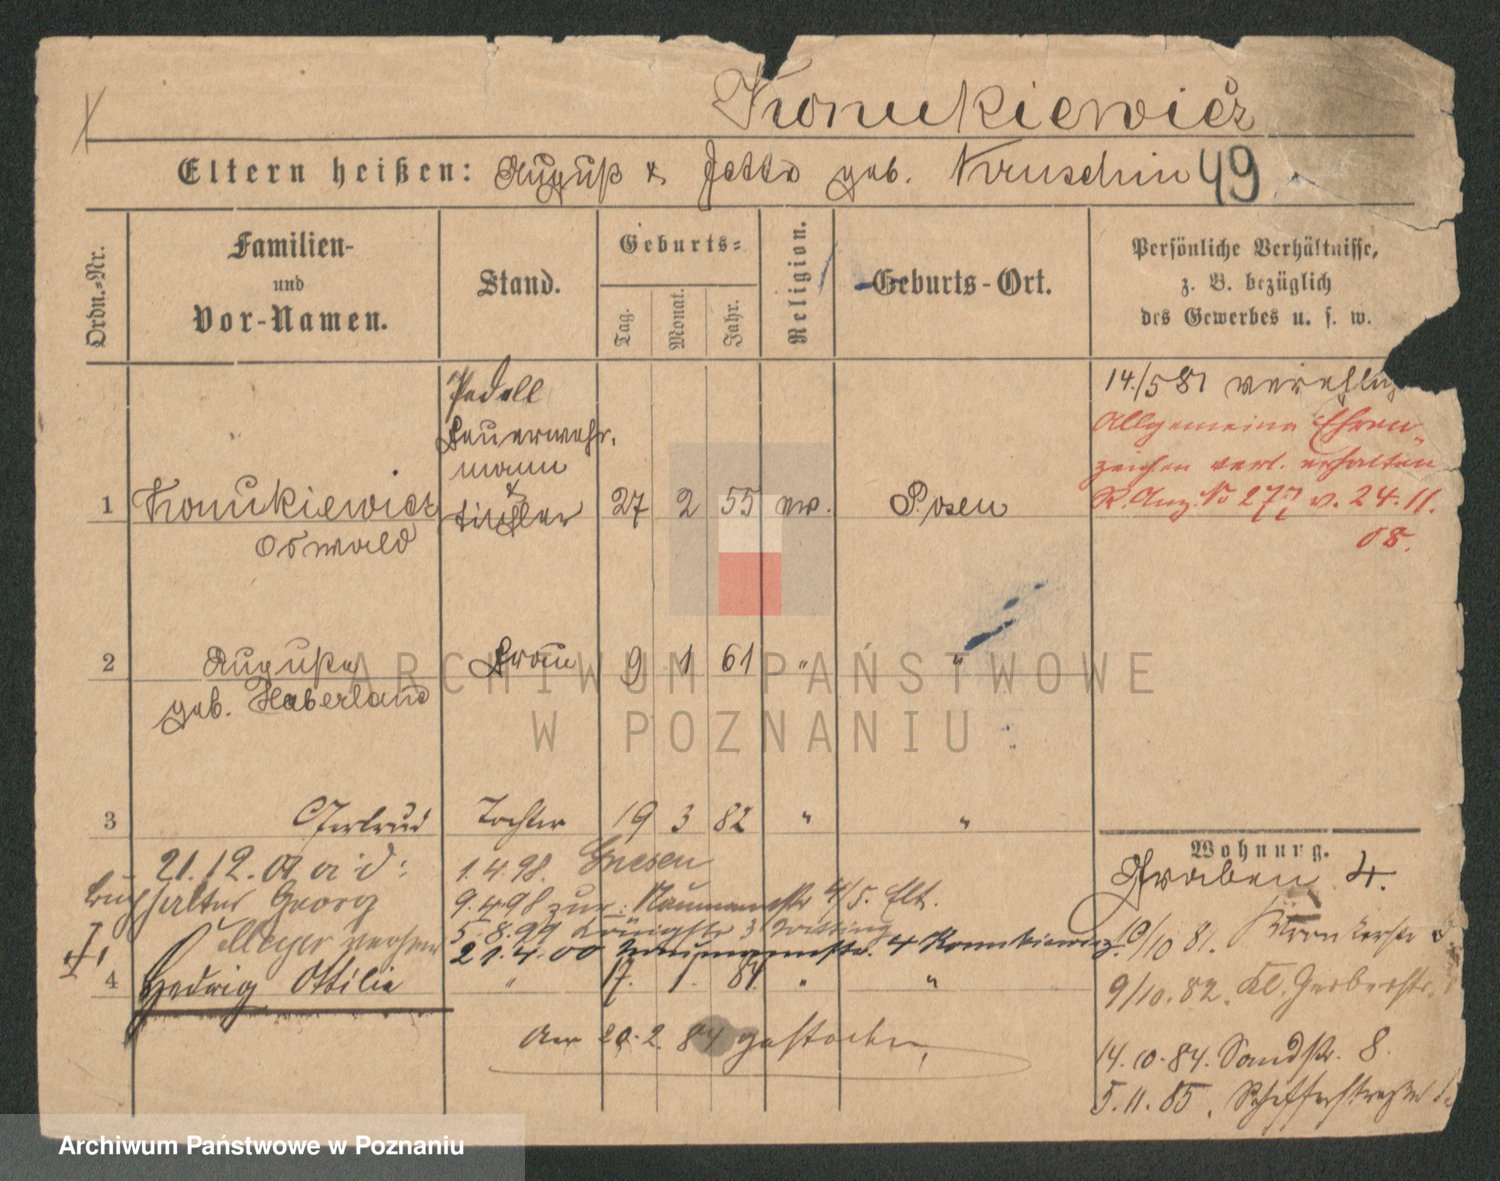 Konukiewicz
Eltern heißen: August & Jette geb. Kruschin 49
Ordn.-Nr.
Familien-
und
Vor-Namen.
Stand.
Geburts-
Tag.
Monat.
Jahr.
Religion.
Geburts-Ort.
Persönliche Verhältnisse,
z. B. bezüglich
des Gewerbes u. s. w.
1 Konukiewicz
Oswald
Pedell
Feuerwehr-
mann
&
Tischler
27 2 55 ev. Posen
14./5 81
Allgemeine Ehren-
zeichen verl. erhalten
R. Anz. No 277 v. 24.11.
08.
2 Auguste
geb. Haberland
Frau 9 1 61 " "
3 Gertrud Tochter 19 3 82 " "
21.12.01 a. d:
Buchhalter Georg
Meyer
1.4.98. Gnesen
9.4.98 zur: Naumannstr 4/5. Elt.
5.8.99 Königstr 3
21.4.00 Naumannstr. 4 Konukiewicz.
4 Hedwig Ottilie " 17. 1. 84. " "
Am 20.2.84 gestorben,
Wohnung.
Graben 4.
19/10 81.
9/10.82. Kl. Gerberstr.
14.10.84. Sandstr. 8.
5.11.85. Schifferstraße
ARCHIWUM PAŃSTWOWE
W POZNANIU
Archiwum Państwowe w Poznaniu